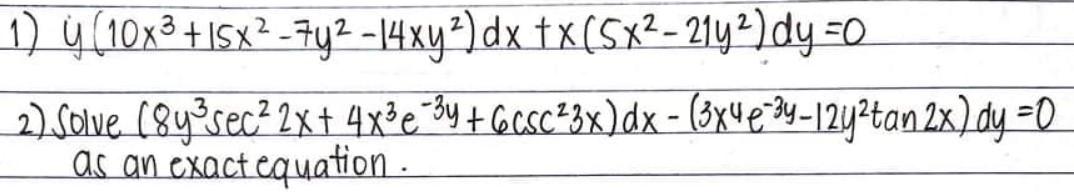 1) y(10x³+15x²-7y²-14xy²)dx+x(5x²-21y²)dy=0
2) Solve (8y³sec²2x+4x³e⁻³ʸ+6csc²3x)dx-(3x⁴e⁻³ʸ-12y²tan2x)dy=0
as an exact equation.